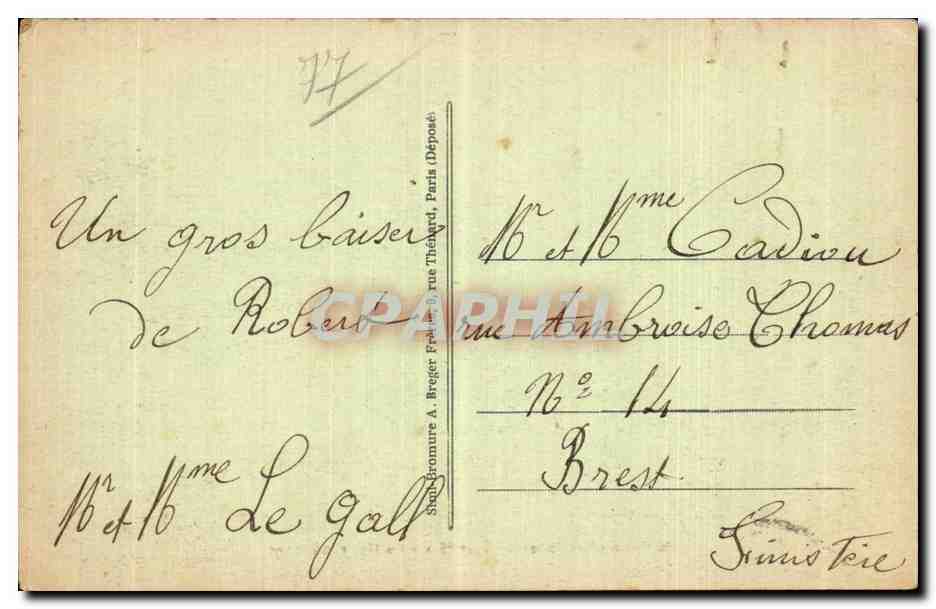 77
Un gros baiser
de Robert
Mr et Mme Le Gall
Simi-Bromure A. Breger Frères, 9, rue Thénard, Paris (Déposé)
Mr et Mme Cadiou
rue Ambroise Thomas
No 14
Brest
Finistère
CPARHIL